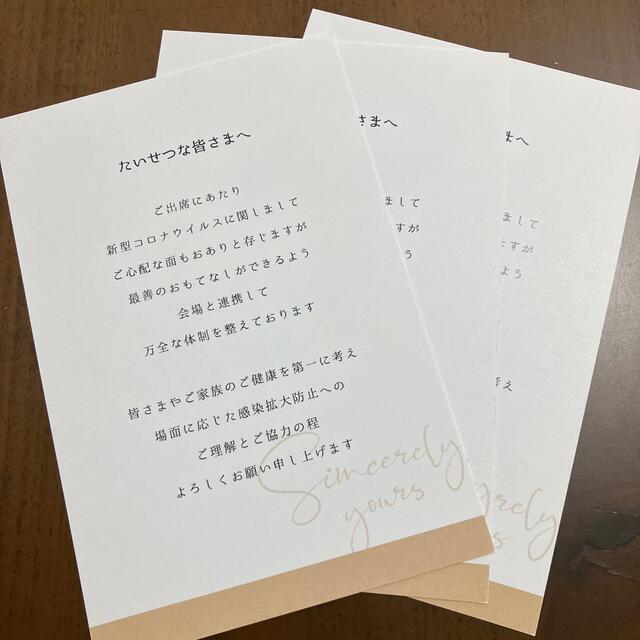 たいせつな皆さまへ
ご出席にあたり
新型コロナウイルスに関しまして
ご心配な面もおありと存じますが
最善のおもてなしができるよう
会場と連携して
万全な体制を整えております
皆さまやご家族のご健康を第一に考え
場面に応じた感染拡大防止への
ご理解とご協力の程
よろしくお願い申し上げます
Sincerely,
yours
さまへ
まして
すが
う
rely
s
へ
まして
ますが
よう
考え